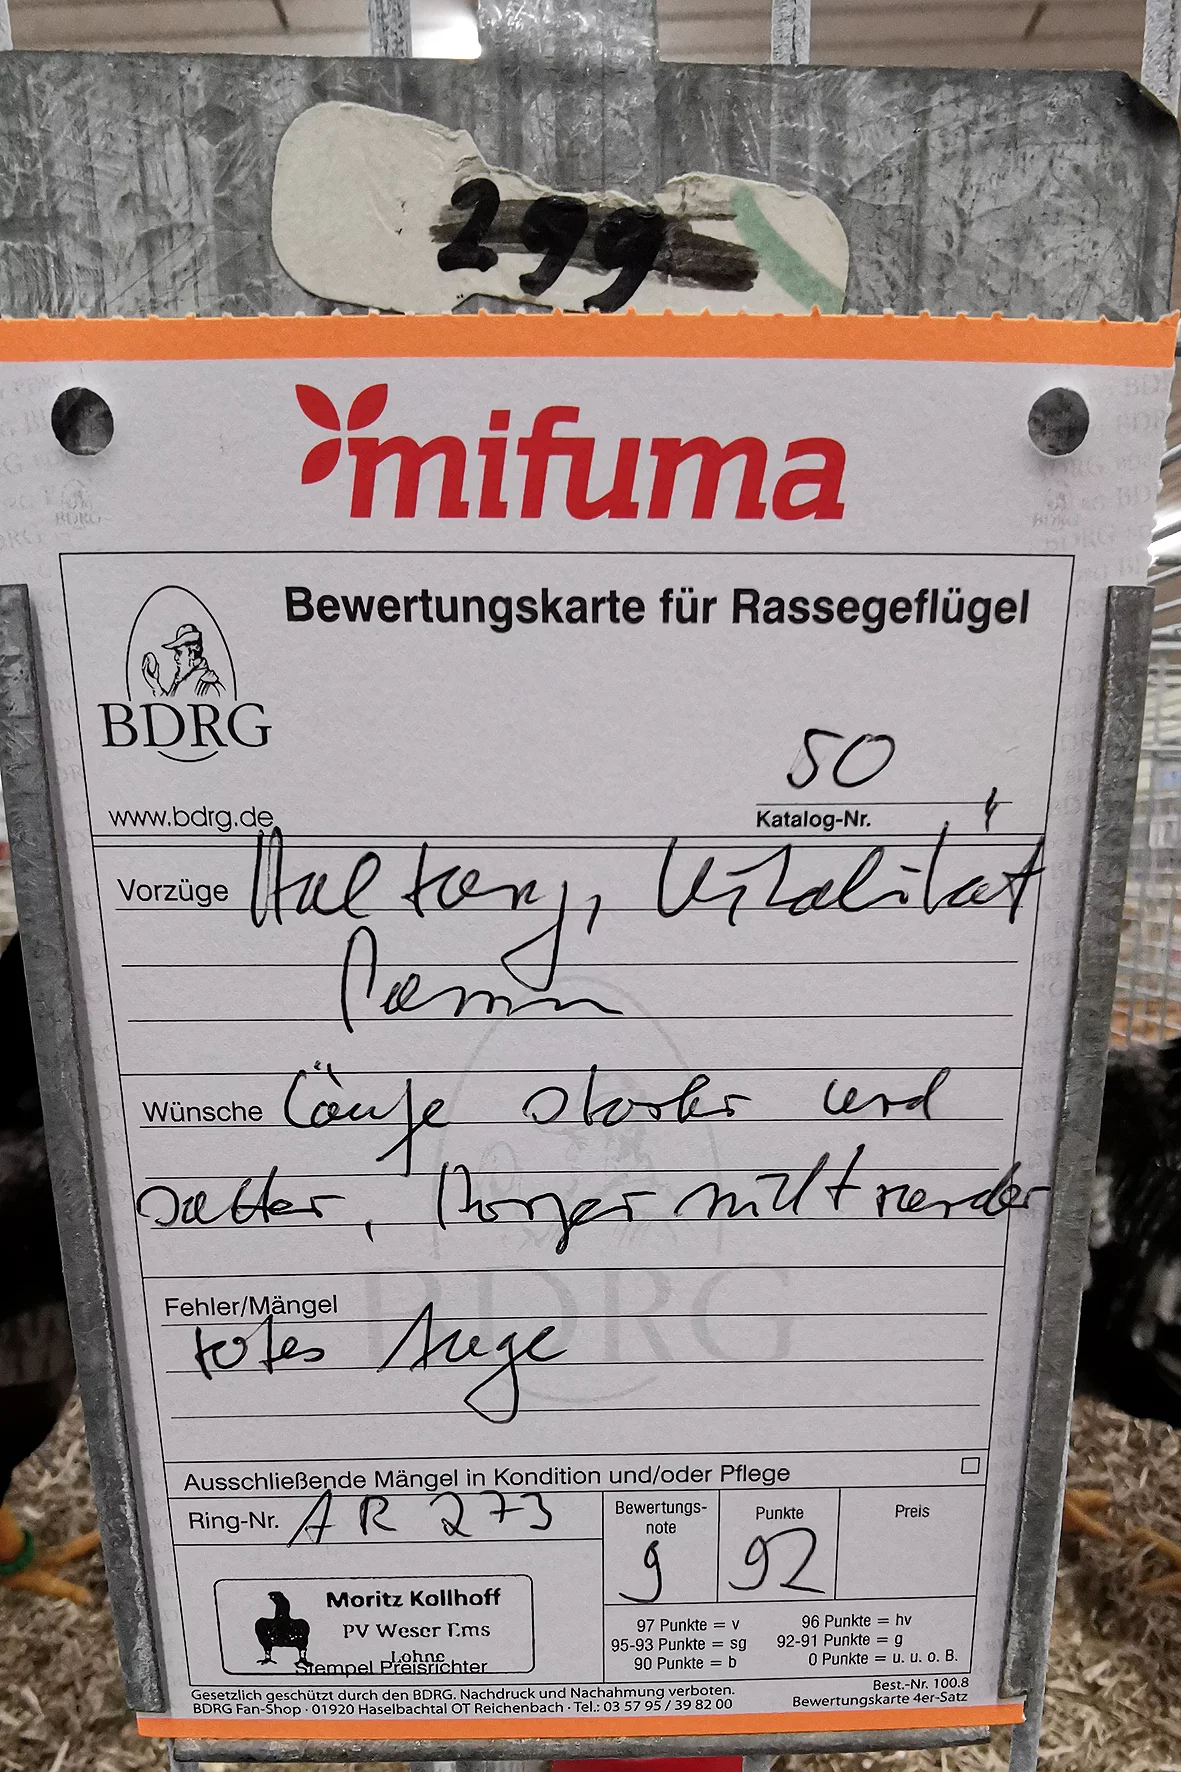 299
mifuma
Bewertungskarte für Rassegeflügel
BDRG
www.bdrg.de
50
Katalog-Nr.
Vorzüge Haltung, Vitalität
Kamm
Wünsche Läufe starker und
satter,
Fehler/Mängel
totes Auge
Ausschließende Mängel in Kondition und/oder Pflege
Ring-Nr. AR 273
Bewertungs-
note
g
Punkte
92
Preis
Moritz Kollhoff
PV Weser Ems
Lohne
Stempel Preisrichter
97 Punkte = v 96 Punkte = hv
95-93 Punkte = sg 92-91 Punkte = g
90 Punkte = b 0 Punkte = u. u. o. B.
Gesetzlich geschützt durch den BDRG. Nachdruck und Nachahmung verboten. Best.-Nr. 100.8
BDRG Fan-Shop · 01920 Haselbachtal OT Reichenbach · Tel.: 03 57 95 / 39 82 00 Bewertungskarte 4er-Satz